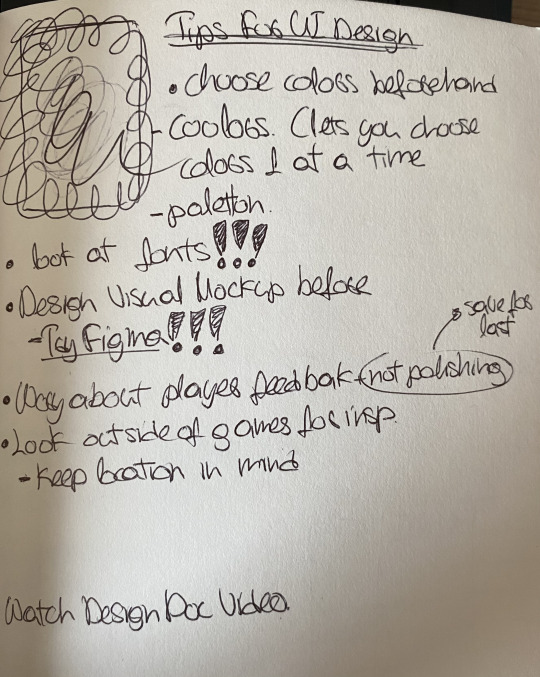 Tips for UI Design
• choose colors beforehand
- coolors. (lets you choose
colors 1 at a time
- paletton.
• look at fonts!!!
• Design Visual Mockup before
- Try Figma!!!
• Worry about player feedbak not polishing
save for
last
• Look outside of games for insp.
- Keep location in mind
Watch Design Doc Video.